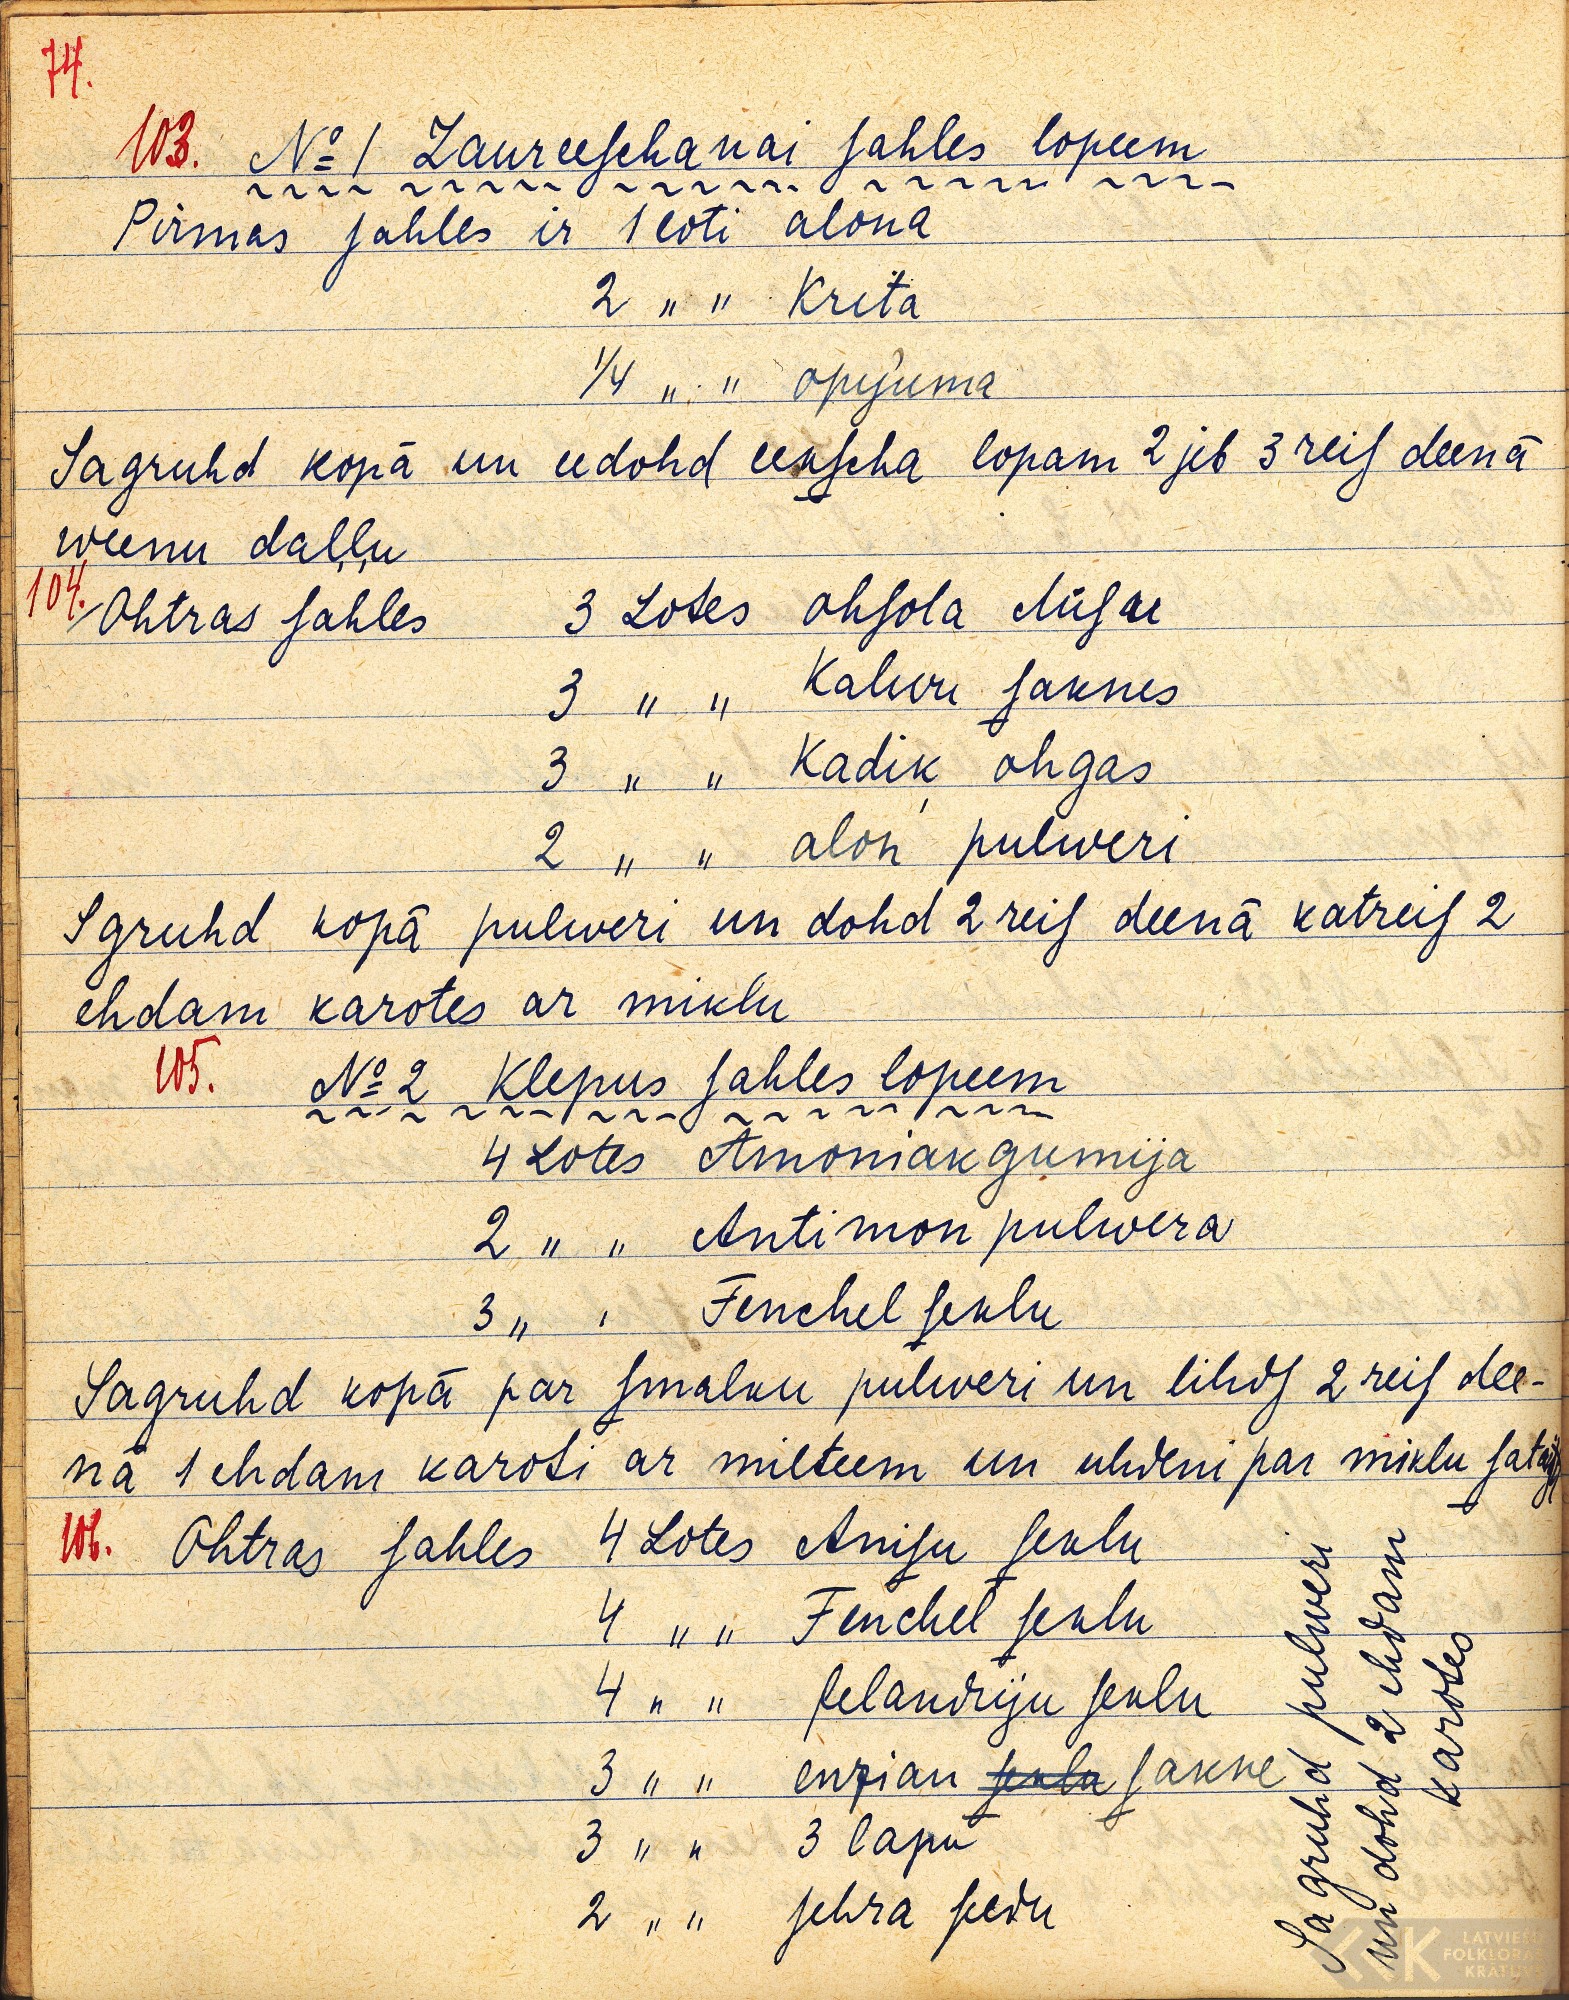 74.
103. № 1 Zaureeſchanai ſahles lopeem
Pirmas ſahles ir 1 loti alona
2 " " Krita
1/4 " " opijuma
Sagruhd kopā un eedohd eekſcha lopam 2 jeb 3 reiſ deenā
weenu daļļu
104. Ohtras ſahles 3 Lotes ohſola miſae
3 " " Kalwu ſaknes
3 " " Kadiķ ohgas
2 " " alon pulweri
Sgruhd kopā pulweri un dohd 2 reiſ deenā katreiſ 2
ehdam karotes ar miklu
105. № 2 Klepus ſahles lopeem
4 Lotes Amoniak gumija
2 " " Antimon pulwera
3 " ' Fenchel ſeklu
Sagruhd kopā par ſmalku pulweri un lihdſ 2 reiſ dee-
nā 1 ehdam karoti ar milteem un uhdeni par miklu
106. Ohtras ſahles 4 Lotes Aniſu ſeklu
4 " " Fenchel ſeklu
4 " " felandriju ſeklu
3 " " enzian ſeklu ſakne
3 " " 3 lapu
2 " " ſehra ſeedu
Sagruhd pulweri
un dohd 2 ehdam
karotes
LATVIEŠU
FOLKLORAS
KRĀTUVE